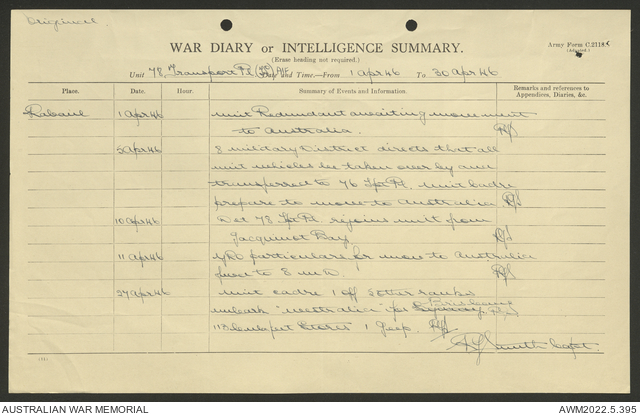 Original
WAR DIARY or INTELLIGENCE SUMMARY.
(Erase heading not required.)
Army Form C.2118.
(Adapted.)
Unit 78 Transport Pl AIF Date and Time.—From 1 Apr 46 To 30 Apr 46
Place. Date. Hour. Summary of Events and Information. Remarks and references to
Appendices, Diaries, &c.
Rabaul 1 Apr 46 Unit Redundant awaiting movement
to Australia.
5 Apr 46 8 military District directs that all
unit vehicles be taken over by and
transferred to 76 Tpt Pl. Unit cadre
prepare to move to Australia
10 Apr 46 Det 78 Tpt Pl rejoins unit from
Jacquinot Bay
11 Apr 46 particulars for move to Australia
to 8 M.D.
27 Apr 46 Unit cadre 1 off 5 other ranks
embark "Westralia" for Brisbane
Stores 1 Jeep.
Smith Capt.
AUSTRALIAN WAR MEMORIAL AWM2022.5.395